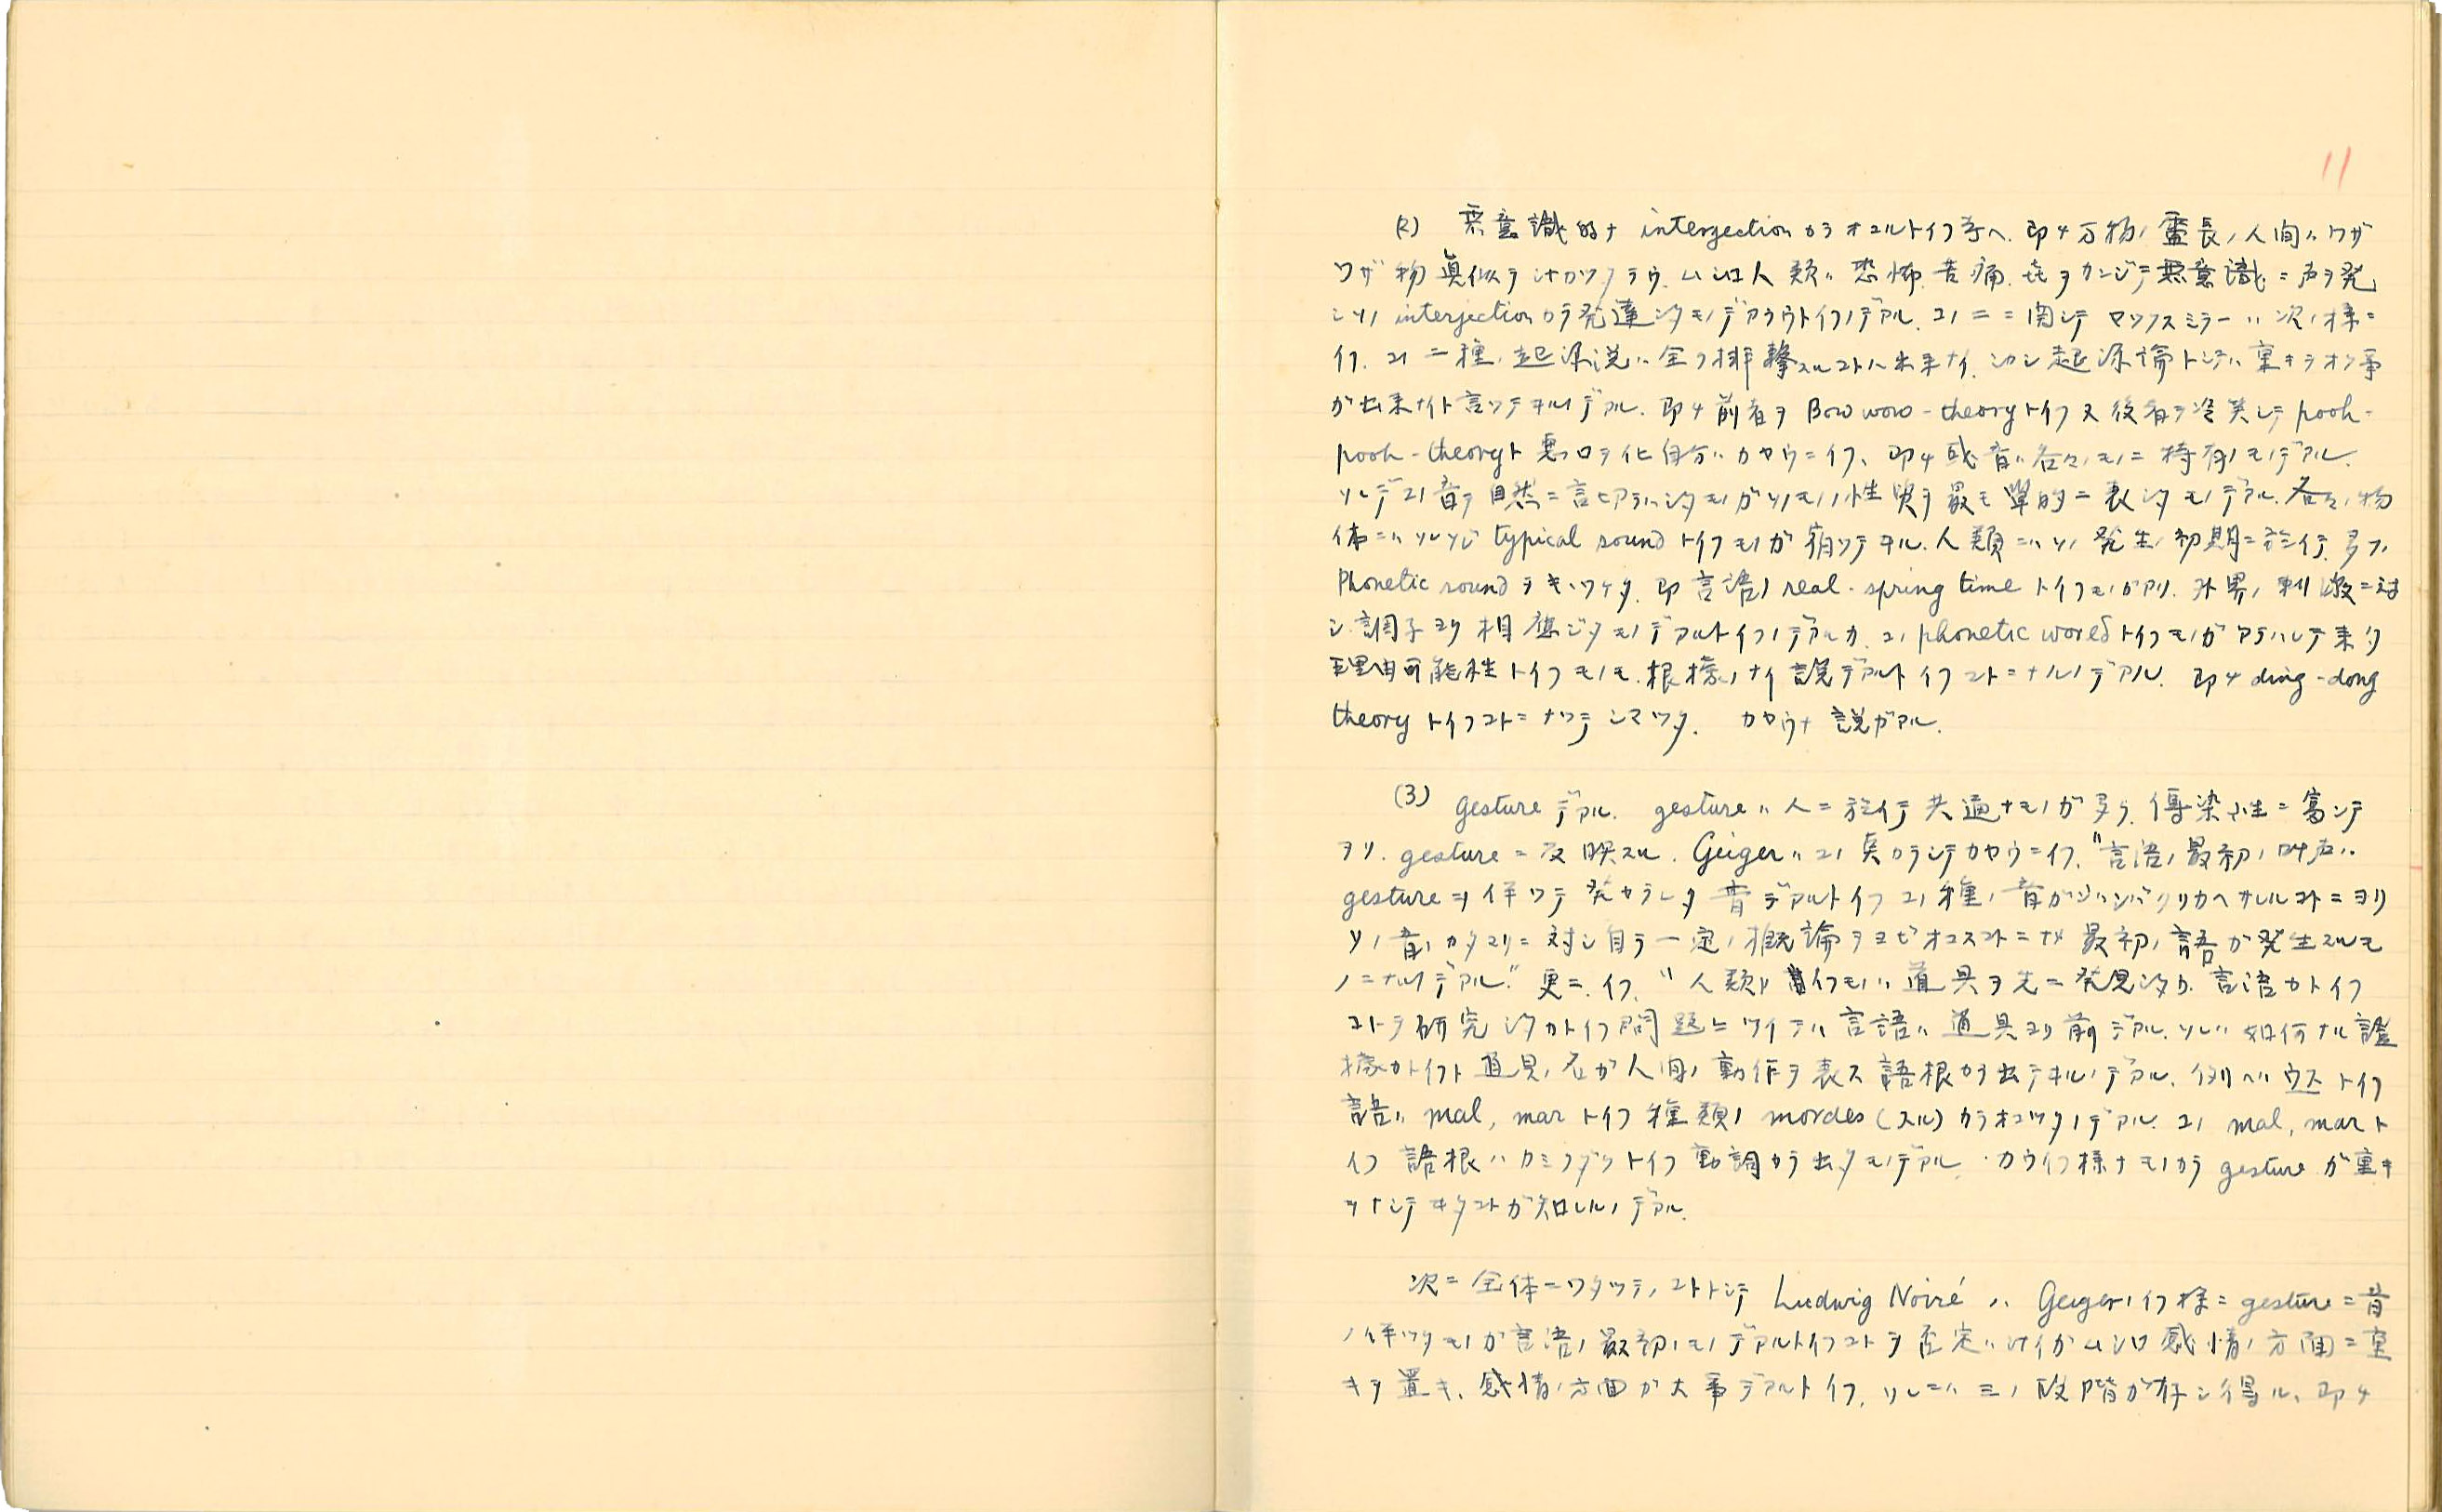 11
(2) 無意識的ナ interjection カラオコルトイフ考ヘ. 即チ万物ノ霊長ノ人間ハワザ
ワザ物真似ヲシナカツタラウ. ムシロ人類ハ恐怖. 苦痛. 等ヲカンジテ無意識ニ声ヲ発
シソノ interjection カラ発達シタモノデアラウトイフノデアル. コノ二ニ関シテマツクスミラーハ次ノ様ニ
イフ. コノ二種ノ起源説ハ全ク排撃スルコトハ出来ナイ. シカシ起源論トシテハ重キヲオク事
ガ出来ナイト言ツテヰルノデアル. 即チ前者ヲ Bow wow - theory トイフ又後者ヲ冷笑シテ pooh -
pooh - theory ト悪口ヲイヒ自分ハカヤウニイフ、即チ或音ハ各々ノモノニ特有ノモノデアル.
ソレデコノ音ヲ自然ニ言ヒアラハシタモノガソノモノノ性質ヲ最モ単的ニ表シタモノデアル. 各々ノ物
体ニハソレゾレ typical sound トイフモノガ宿ツテヰル. 人類ニハソノ発生ノ初期ニ於イテ. 多クノ
Phonetic sound ヲキヽワケタ. 即言語ノ real - spring time トイフモノガアリ. 外界ノ刺激ニ対
シ調子ヨク相応ジタモノデアルトイフノデアルガ. コノ phonetic world トイフモノガアラハレテ来タ
理由可能性トイフモノモ. 根拠ノナイ説デアルトイフコトニナルノデアル. 即チ ding - dong
theory トイフコトニナツテシマツタ. カヤウナ説ガアル.
(3) gesture デアル. gesture ハ人ニ於イテ共通ナモノガ多ク. 傳染性ニ富ンデ
ヲリ. gesture ニ反映スル. Geiger ハコノ点カラシテカヤウニイフ. "言語ノ最初ノ叫声ハ
gesture ニ伴ツテ発セラレタ音デアルトイフコノ種ノ音ガシバシバクリカヘサレルコトニヨリ
ソノ音ノカタマリニ対シ自ラ一定ノ概論ヲヨビオコスコトニナリ最初ノ語ガ発生スルモ
ノニナルノデアル." 更ニ. イフ. "人類ノイフモノハ道具ヲ先ニ発見シタカ. 言語カトイフ
コトヲ研究シタカトイフ問題ニツイテハ言語ハ道具ヨリ前デアル. ソレハ如何ナル證
拠カトイフト道具ノ名ガ人間ノ動作ヲ表ス語根カラ出テヰルノデアル. 例ヘバウストイフ
語ハ mal, mar トイフ種類ノ mordes (スル) カラオコツタノデアル. コノ mal, mar ト
イフ語根ハカミクダクトイフ動詞カラ出タモノデアル. カウイフ様ナモノカラ gesture ガ重キ
ヲナシテヰタコトガ知レルノデアル.
次ニ全体ニワタツテノコトトシテ Ludwig Noiré ハ Geiger ノイフ様ニ gesture ニ音
ノ伴ツタモノガ言語ノ最初ノモノデアルトイフコトヲ否定ハシナイガムシロ感情ノ方面ニ重
キヲ置キ. 感情ノ方面ガ大事デアルトイフ. ソレニハ三ノ段階ガ存シ得ル. 即チ